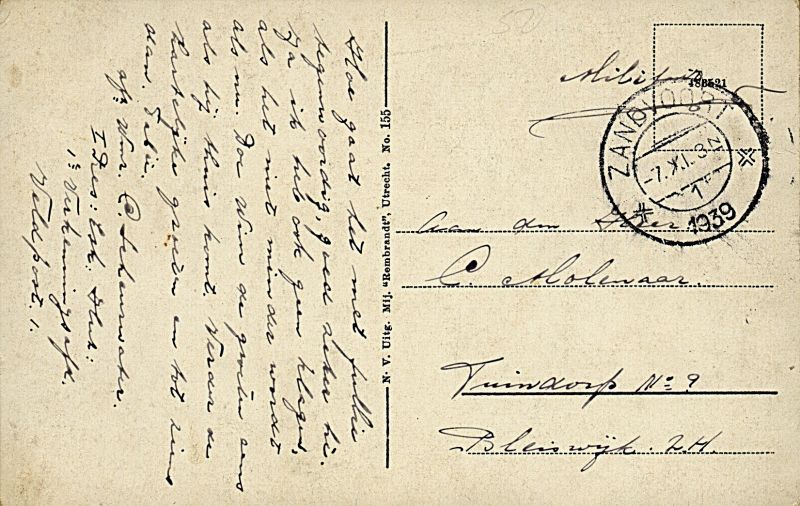 Hoe gaat het met jullie
tegenwoordig, goed zeker hè.
Ja ik heb ook geen klagen,
als het niet minder wordt
als nu. Doe Wim de groeten eens
als hij thuis komt. Verder de
hartelijke groeten en tot ziens
dan.
afz Wmr. C. Schoenwater.
I Des: Esk: Huz:
1e Verkenningsafd.
Veldpost 1.
N. V. Uitg. Mij. "Rembrandt", Utrecht. No. 155
Militair
ZANDVOORT
-7.XI. 
1939
Aan den Heer
C. Molenaar.
Tuindorp No 9
Bleiswijk. Z.H.